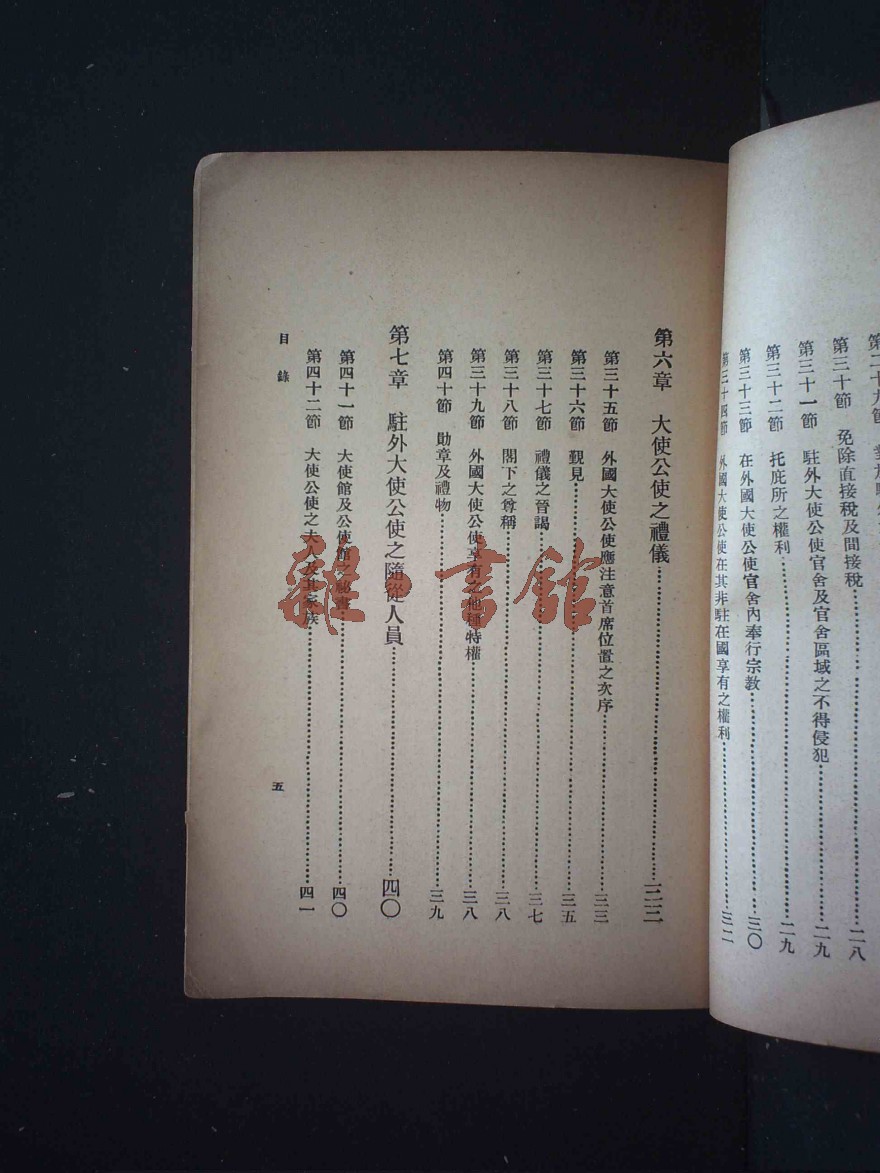 第三十節　免除直接稅及間接稅……二八
第三十一節　駐外大使公使官舍及官舍區域之不得侵犯……二九
第三十二節　托庇所之權利……二九
第三十三節　在外國大使公使官舍內奉行宗教……三〇
第三十四節　外國大使公使在其非駐在國享有之權利……三二
第六章　大使公使之禮儀……三三
第三十五節　外國大使公使應注意首席位置之次序……三三
第三十六節　覲見……三五
第三十七節　禮儀之晉謁……三七
第三十八節　閣下之尊稱……三八
第三十九節　外國大使公使享有之他種特權……三八
第四十節　勛章及禮物……三九
第七章　駐外大使公使之隨從人員……四〇
第四十一節　大使館及公使館之祕書……四〇
第四十二節　大使公使之夫人及其家族……四一
目錄　五
雜·書館